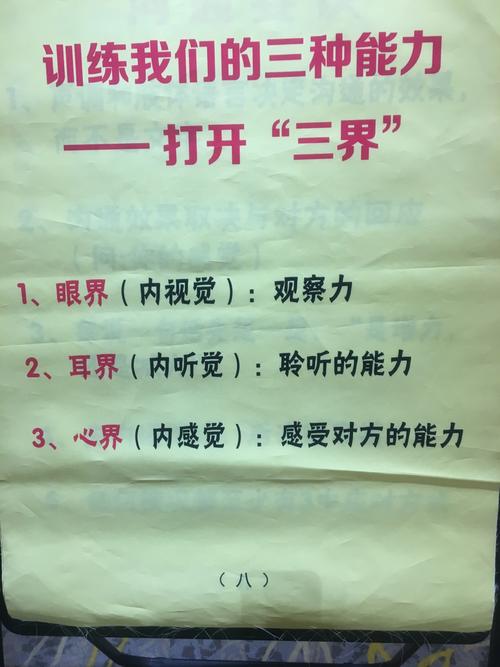 训练我们的三种能力
—— 打开“三界”
1、眼界（内视觉）：观察力
2、耳界（内听觉）：聆听的能力
3、心界（内感觉）：感受对方的能力
（八）